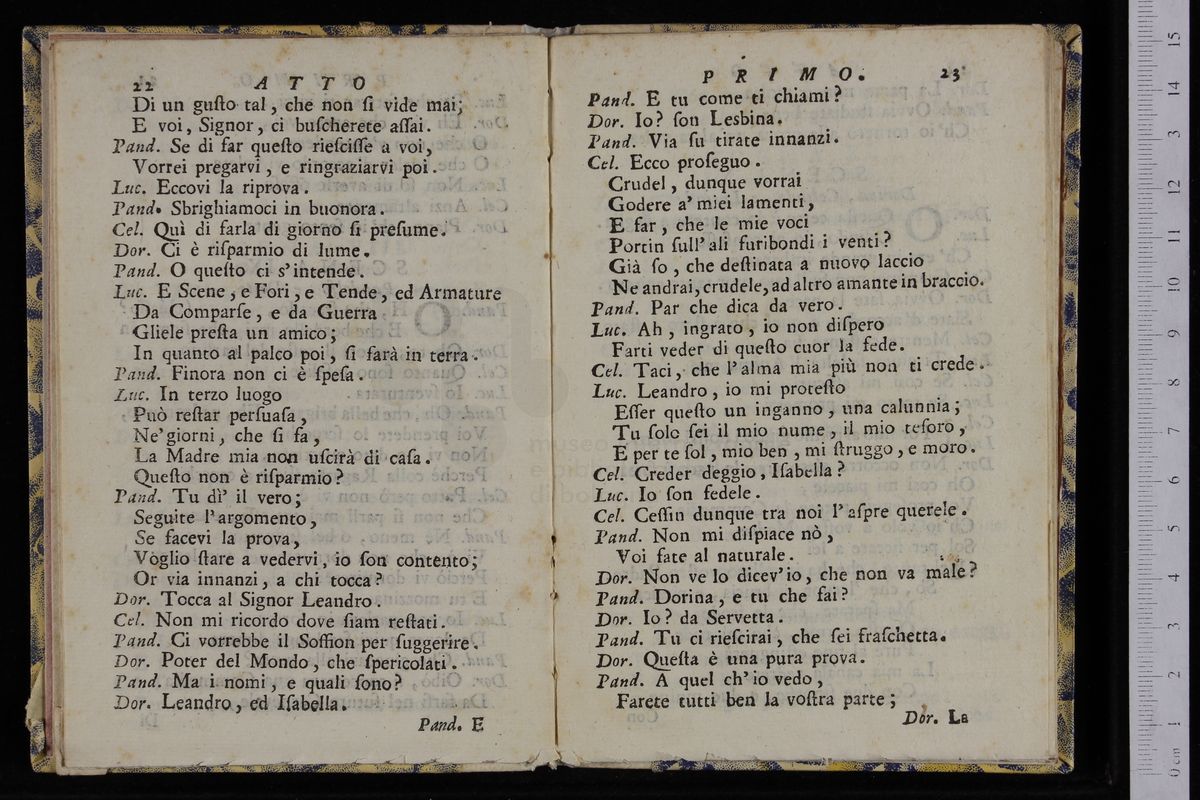 22 ATTO
Di un guſto tal, che non ſi vide mai;
E voi, Signor, ci buſcherete aſſai.
Pand. Se di far queſto rieſciſſe a voi,
Vorrei pregarvi, e ringraziarvi poi.
Luc. Eccovi la riprova.
Pand. Sbrighiamoci in buonora.
Cel. Quì di farla di giorno ſi preſume.
Dor. Ci è riſparmio di lume.
Pand. O queſto ci s'intende.
Luc. E Scene, e Fori, e Tende, ed Armature
Da Comparſe, e da Guerra
Gliele preſta un amico;
In quanto al palco poi, ſi farà in terra.
Pand. Finora non ci è ſpeſa.
Luc. In terzo luogo
Può reſtar perſuaſa,
Ne'giorni, che ſi fa,
La Madre mia non uſcirà di caſa.
Queſto non è riſparmio?
Pand. Tu dì' il vero;
Seguite l'argomento,
Se facevi la prova,
Voglio ſtare a vedervi, io ſon contento;
Or via innanzi, a chi tocca?
Dor. Tocca al Signor Leandro.
Cel. Non mi ricordo dove ſiam reſtati.
Pand. Ci vorrebbe il Soffion per ſuggerire.
Dor. Poter del Mondo, che ſpericolati.
Pand. Ma i nomi, e quali ſono?
Dor. Leandro, ed Iſabella.
Pand. E
PRIMO. 23
Pand. E tu come ti chiami?
Dor. Io? ſon Lesbina.
Pand. Via ſu tirate innanzi.
Cel. Ecco proſeguo.
Crudel, dunque vorrai
Godere a' miei lamenti,
E far, che le mie voci
Portin ſull' ali furibondi i venti?
Già ſo, che deſtinata a nuovo laccio
Ne andrai, crudele, ad altro amante in braccio.
Pand. Par che dica da vero.
Luc. Ah, ingrato, io non diſpero
Farti veder di queſto cuor la fede.
Cel. Taci, che l'alma mia più non ti crede.
Luc. Leandro, io mi proteſto
Eſſer queſto un inganno, una calunnia;
Tu ſolo ſei il mio nume, il mio teſoro,
E per te ſol, mio ben, mi ſtruggo, e moro.
Cel. Creder deggio, Iſabella?
Luc. Io ſon fedele.
Cel. Ceſſin dunque tra noi l'aſpre querele.
Pand. Non mi diſpiace nò,
Voi fate al naturale.
Dor. Non ve lo dicev'io, che non va male?
Pand. Dorina, e tu che fai?
Dor. Io? da Servetta.
Pand. Tu ci rieſcirai, che ſei fraſchetta.
Dor. Queſta è una pura prova.
Pand. A quel ch'io vedo,
Farete tutti ben la voſtra parte;
Dor. La